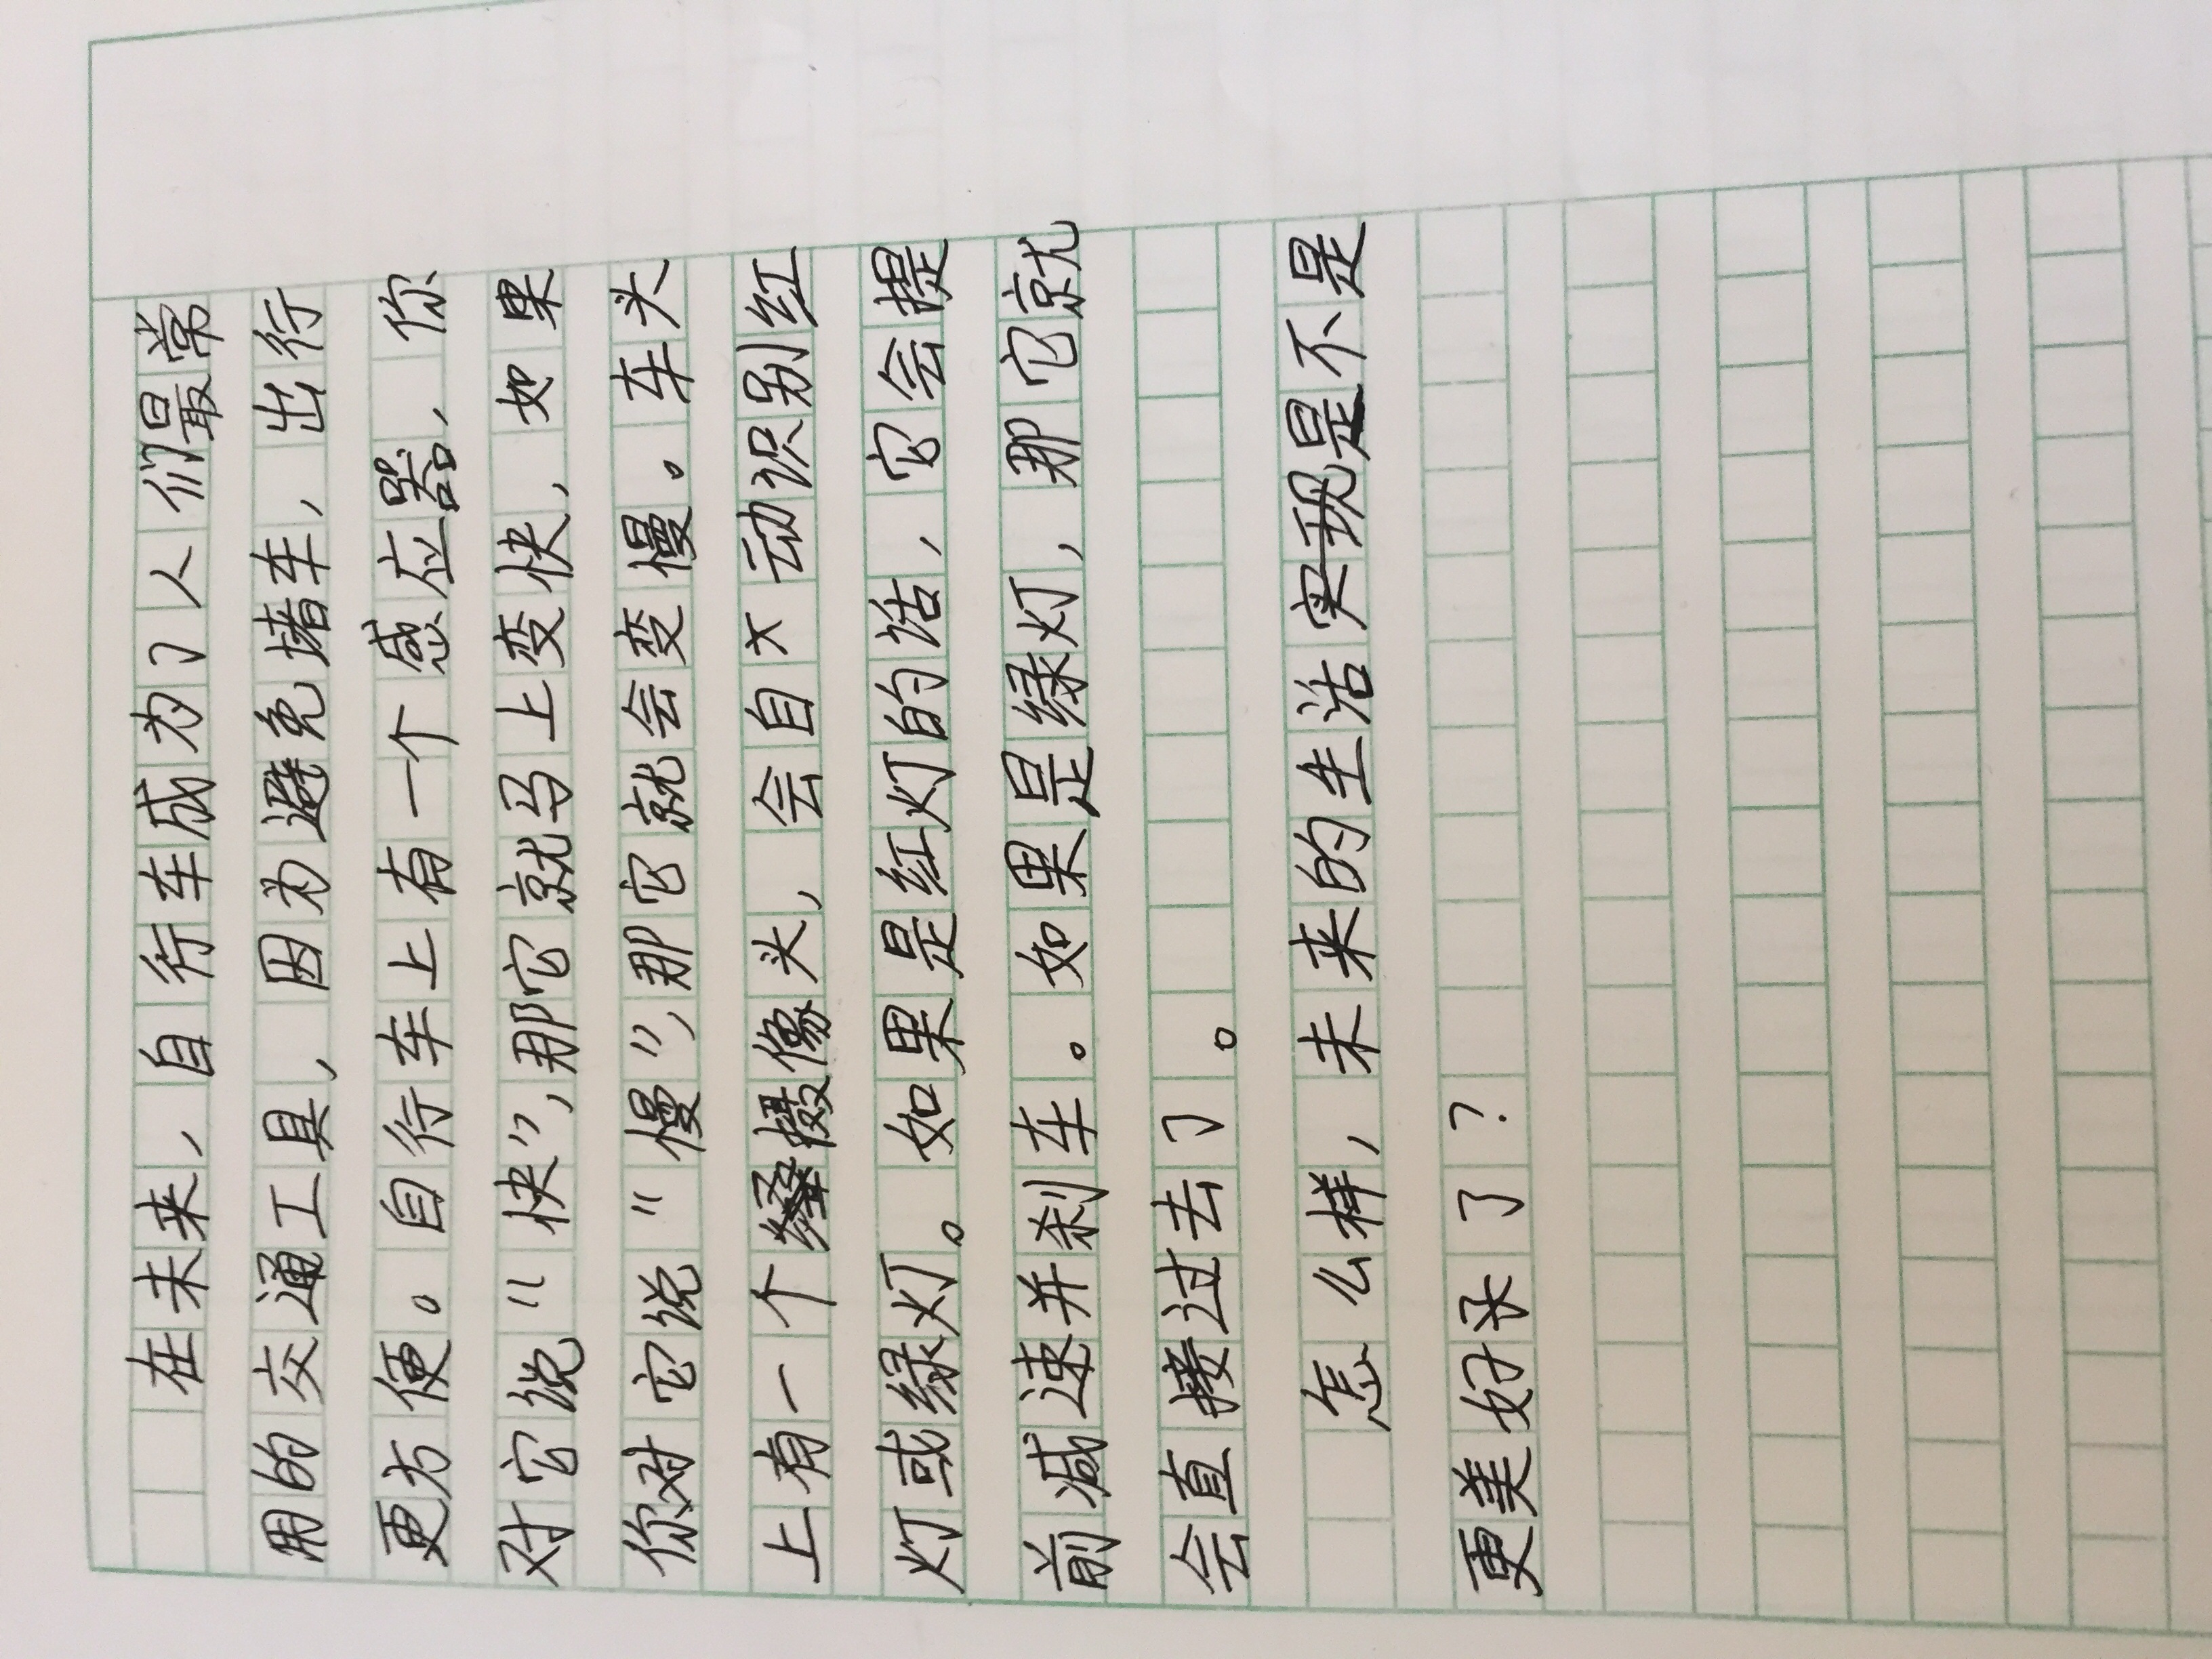 在未来，自行车成为了人们最常
用的交通工具，因为避免堵车，出行
更方便。自行车上有一个感应器，你
对它说“快”，那它就马上变快，如果
你对它说“慢”，那它就会变慢。车头
上有一个摄像头，会自动识别红
灯或绿灯。如果是红灯的话，它会提
前减速并刹车。如果是绿灯，那它就
会直接过去了。
怎么样，未来的生活是不是
更美好了？